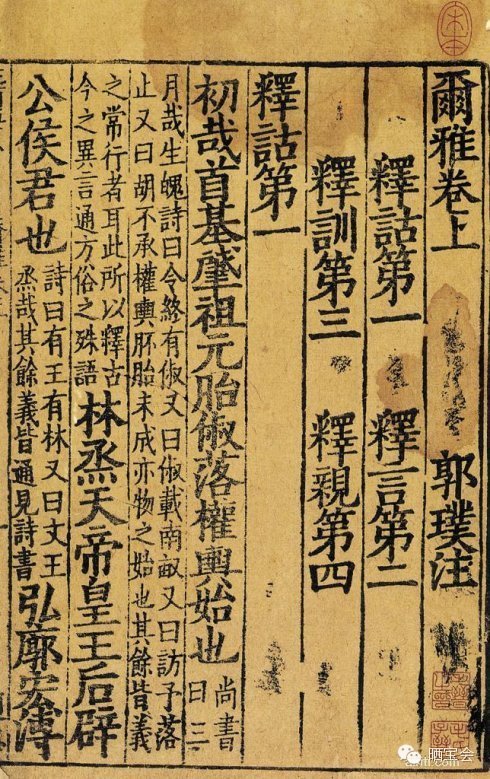 爾雅卷上 郭璞注
釋詁第一 釋言第二
釋訓第三 釋親第四
釋詁第一
初哉首基肈祖元胎俶落權輿始也 尚書曰三
月哉生魄詩曰令終有俶又曰俶載南畝又曰訪予落
止又曰胡不承權輿胚胎未成亦物之始也其餘皆義
之常行者耳此所以釋古
今之異言通方俗之殊語
林烝天帝皇王后辟
公侯君也
詩曰有王有林又曰文王
烝哉其餘義皆通見詩書
弘廓宏溥
晒宝会